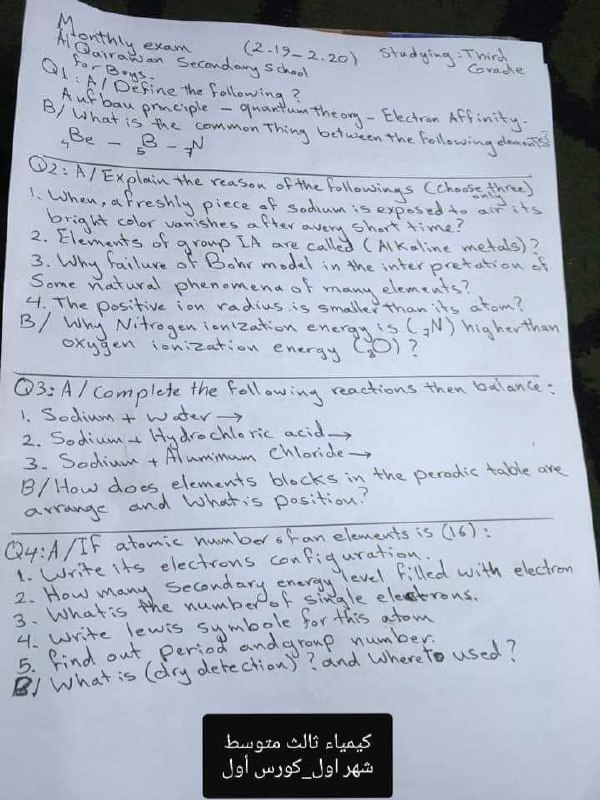 Monthly exam (2.19-2.20) Studying: Third
Al Qairawan Secondary School Grade
for Boys.
Q1: A/ Define the following?
Aufbau prnciple - quantum theory - Electron Affinity.
B/ What is the common Thing between the following elements?
₄Be - ₅B - ₇N
Q2: A/ Explain the reason of the followings (Choose three) only
1. When, a freshly piece of sodium is exposed to air its
bright color vanishes after avery short time?
2. Elements of group IA are called (Alkaline metals)?
3. Why failure of Bohr model in the interpretation of
Some natural phenomena of many elements?
4. The positive ion radius is smaller than its atom?
B/ Why Nitrogen ionization energy is (₇N) higher than
oxygen ionization energy (₈O)?
Q3: A/ Complete the following reactions then balance:
1. Sodium + water →
2. Sodium + Hydrochloric acid →
3. Sodium + Aluminum Chloride →
B/ How does elements blocks in the perodic table are
arrange and What is position?
Q4: A/ If atomic number of an elements is (16):
1. Write its electrons configuration.
2. How many Secondary energy level filled with electron
3. What is the number of single electrons.
4. Write lewis symbole for this atom
5. find out period and group number.
B/ What is (dry detection)? and Where to used?
كيمياء ثالث متوسط
شهر اول_كورس أول